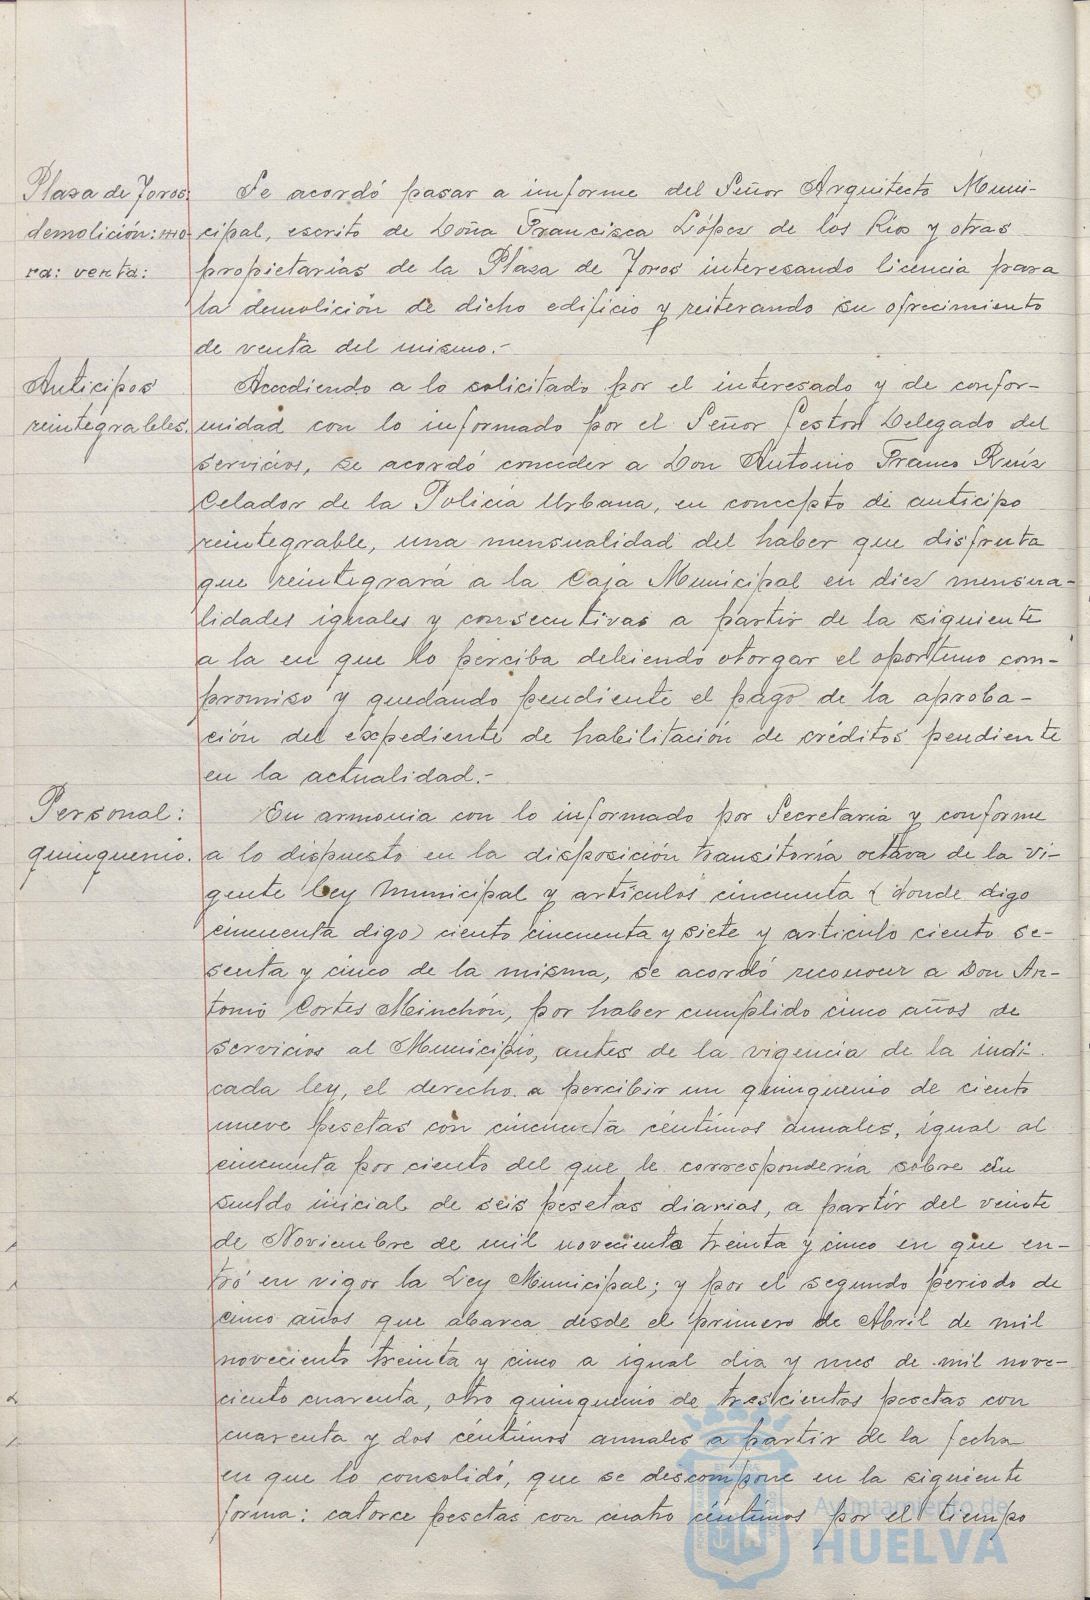 Plaza de Toros:
demolición: mo-
ra: venta:
Se acordó pasar a informe del Señor Arquitecto Muni-
cipal, escrito de Doña Francisca López de los Ríos y otras
propietarias de la Plaza de Toros interesando licencia para
la demolición de dicho edificio y reiterando su ofrecimiento
de venta del mismo.-
Anticipos
reintegrables.
Accediendo a lo solicitado por el interesado y de confor-
midad con lo informado por el Señor Gestor Delegado del
servicios, se acordó conceder a Don Antonio Franco Ruíz
Celador de la Policía Urbana, en concepto de anticipo
reintegrable, una mensualidad del haber que disfruta
que reintegrará a la Caja Municipal en diez mensua-
lidades iguales y consecutivas a partir de la siguiente
a la en que lo perciba debiendo otorgar el oportuno com-
promiso y quedando pendiente el pago de la aproba-
ción del expediente de habilitación de créditos pendiente
en la actualidad.-
Personal:
quinquenio.
En armonia con lo informado por Secretaria y conforme
a lo dispuesto en la disposición transitoria octava de la vi-
gente Ley Municipal y artículos cincuenta (donde digo
cincuenta digo) ciento cincuenta y siete y articulo ciento se-
senta y cinco de la misma, se acordó reconocer a Don An-
tonio Cortes Minchón, por haber cumplido cinco años de
servicios al Municipio, antes de la vigencia de la indi-
cada ley, el derecho a percibir un quinquenio de ciento
nueve pesetas con cincuenta céntimos anuales, igual al
cincuenta por ciento del que le correspondería sobre su
sueldo inicial de seis pesetas diarias, a partir del veinte
de Noviembre de mil novecientos treinta y cinco en que en-
tró en vigor la Ley Municipal; y por el segundo periodo de
cinco años que abarca desde el primero de Abril de mil
noveciento treinta y cinco a igual dia y mes de mil nove-
ciento cuarenta, otro quinquenio de trescientas pesetas con
cuarenta y dos céntimos anuales a partir de la fecha
en que lo consolidó, que se descompone en la siguiente
forma: catorce pesetas con cuatro céntimos por el tiempo
Ayuntamiento de
HUELVA